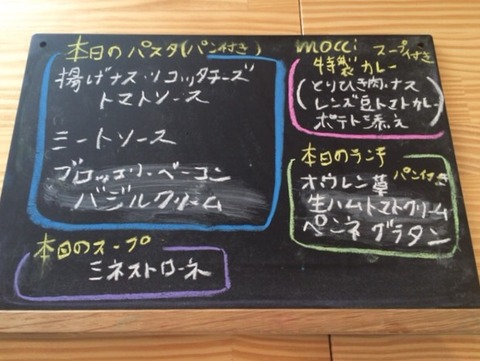 本日のパスタ(パン付き)
揚げナス・リコッタチーズ
トマトソース
ミートソース
ブロッコリー・ベーコン
バジルクリーム
本日のスープ
ミネストローネ
mocci スープ付き
特製カレー
(とりひき肉・ナス
レンズ豆トマトカレー)
ポテト添え
本日のランチ
パン付き
オウレン草
生ハムトマトクリーム
ペンネグラタン